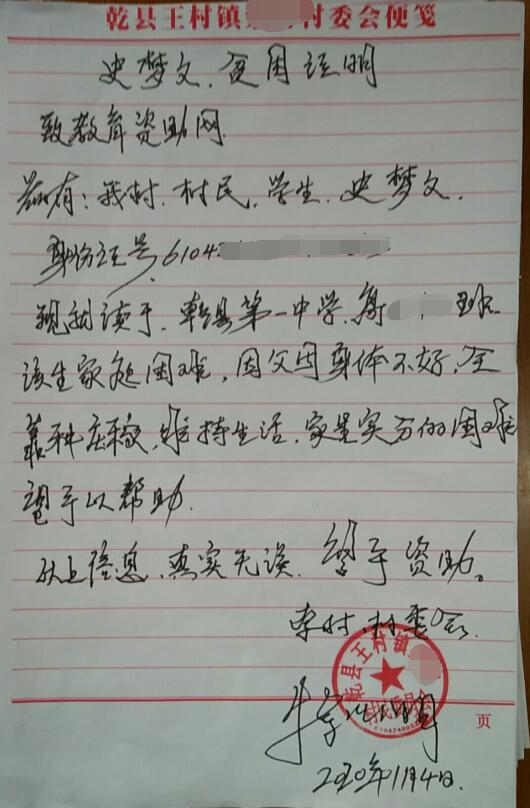 乾县王村镇 村委会便笺
史梦文.贫困证明
致教育资助网
兹有:我村.村民.学生.史梦文.
身份证号.6104
现就读于.乾县第一中学.高 班.
该生家庭困难,因父母身体不好,全
靠种庄稼,维持生活.家里实为困难
望予以帮助.
以上信息.真实无误. 给予资助。
村.村委会.
乾县王村镇
村民委员会
页
2020年11月4日.